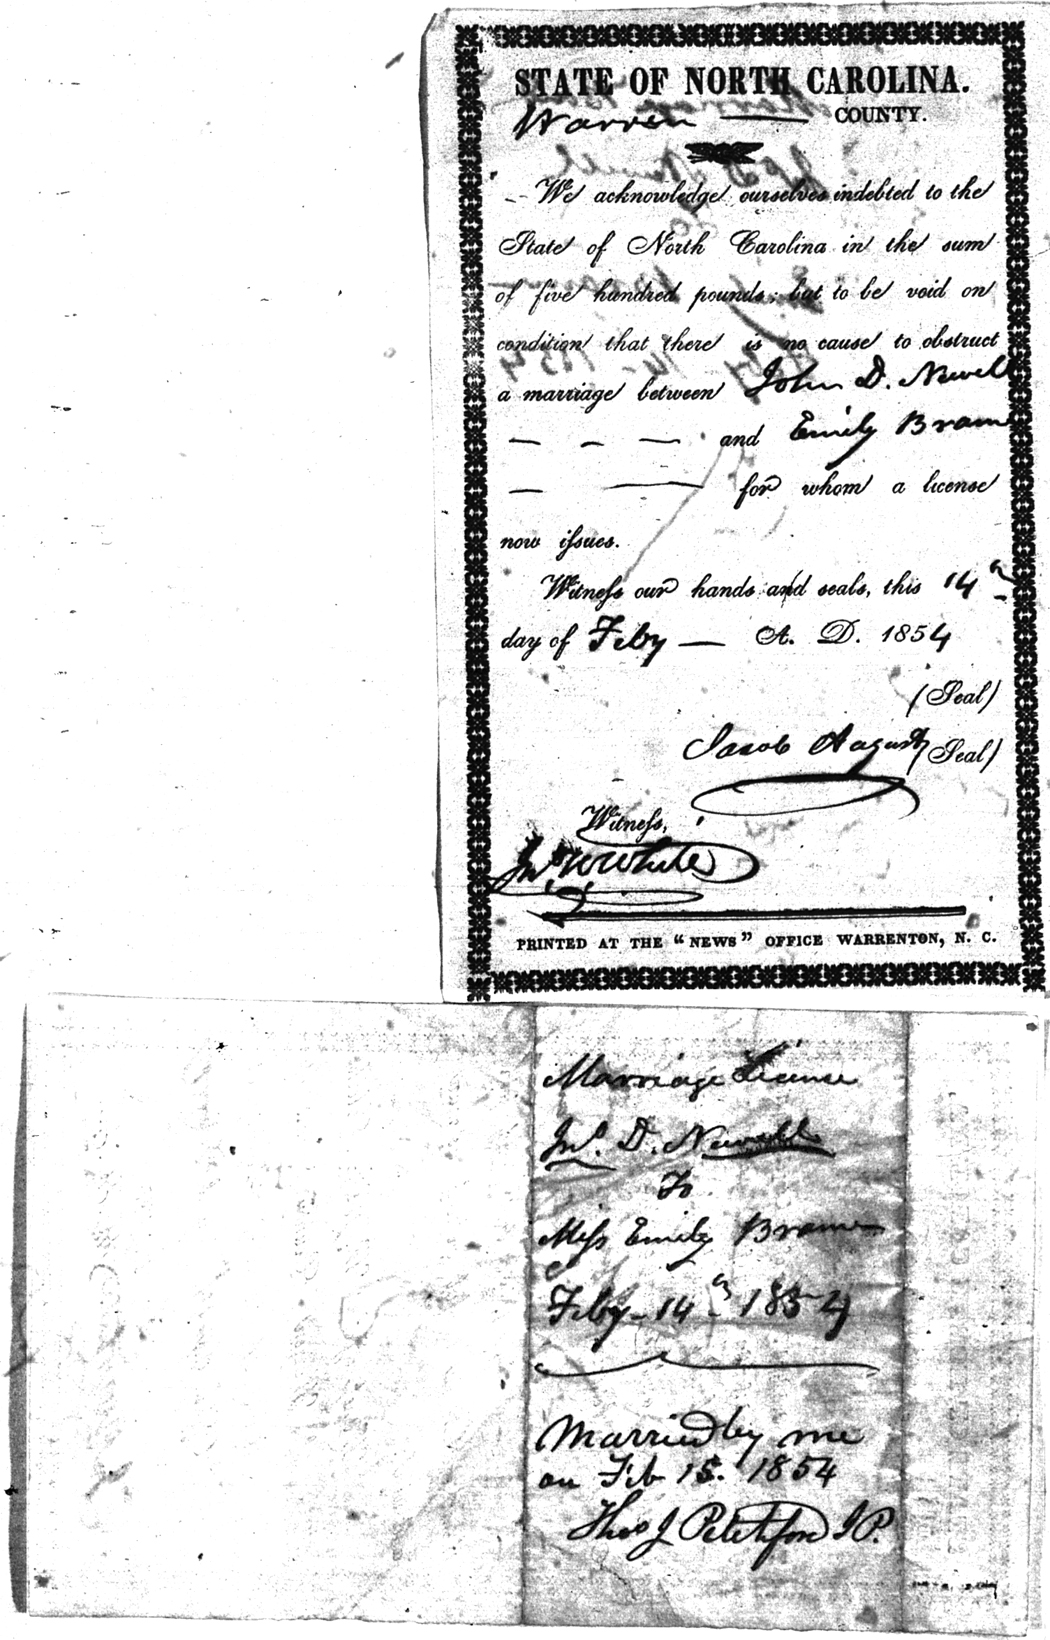 STATE OF NORTH CAROLINA.
Warren — COUNTY.
We acknowledge ourselves indebted to the
State of North Carolina in the sum
of five hundred pounds; but to be void on
condition that there is no cause to obstruct
a marriage between John D. Newell
— – — and Emily Brame
— — for whom a license
now issues.
Witness our hands and seals, this 14th
day of Feby — A. D. 1854
(Seal)
Jacob August (Seal)
Witness,
Jno W White
PRINTED AT THE "NEWS" OFFICE WARRENTON, N. C.
Marriage License
Jno. D. Newell
To
Miss Emily Brame
Feby - 14th 1854
Married by me
on Feb 15. 1854
Thos J